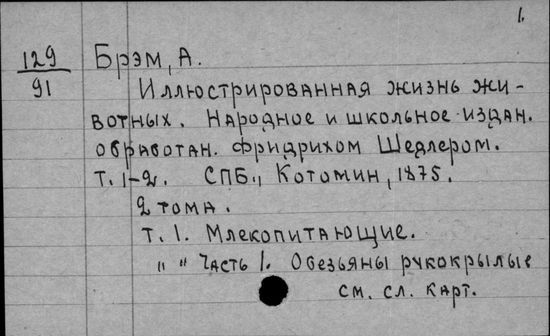 1.
129 Брэм, А.
91 Иллюстрированная жизнь жи-
вотных. Народное и школьное издан.
обработан. Фридрихом Шедлером.
Т. 1-2. СПБ., Котомин, 1875.
2 тома.
т. 1. Млекопитающие.
" " Часть 1. Обезьяны рукокрылые
см. сл. карт.